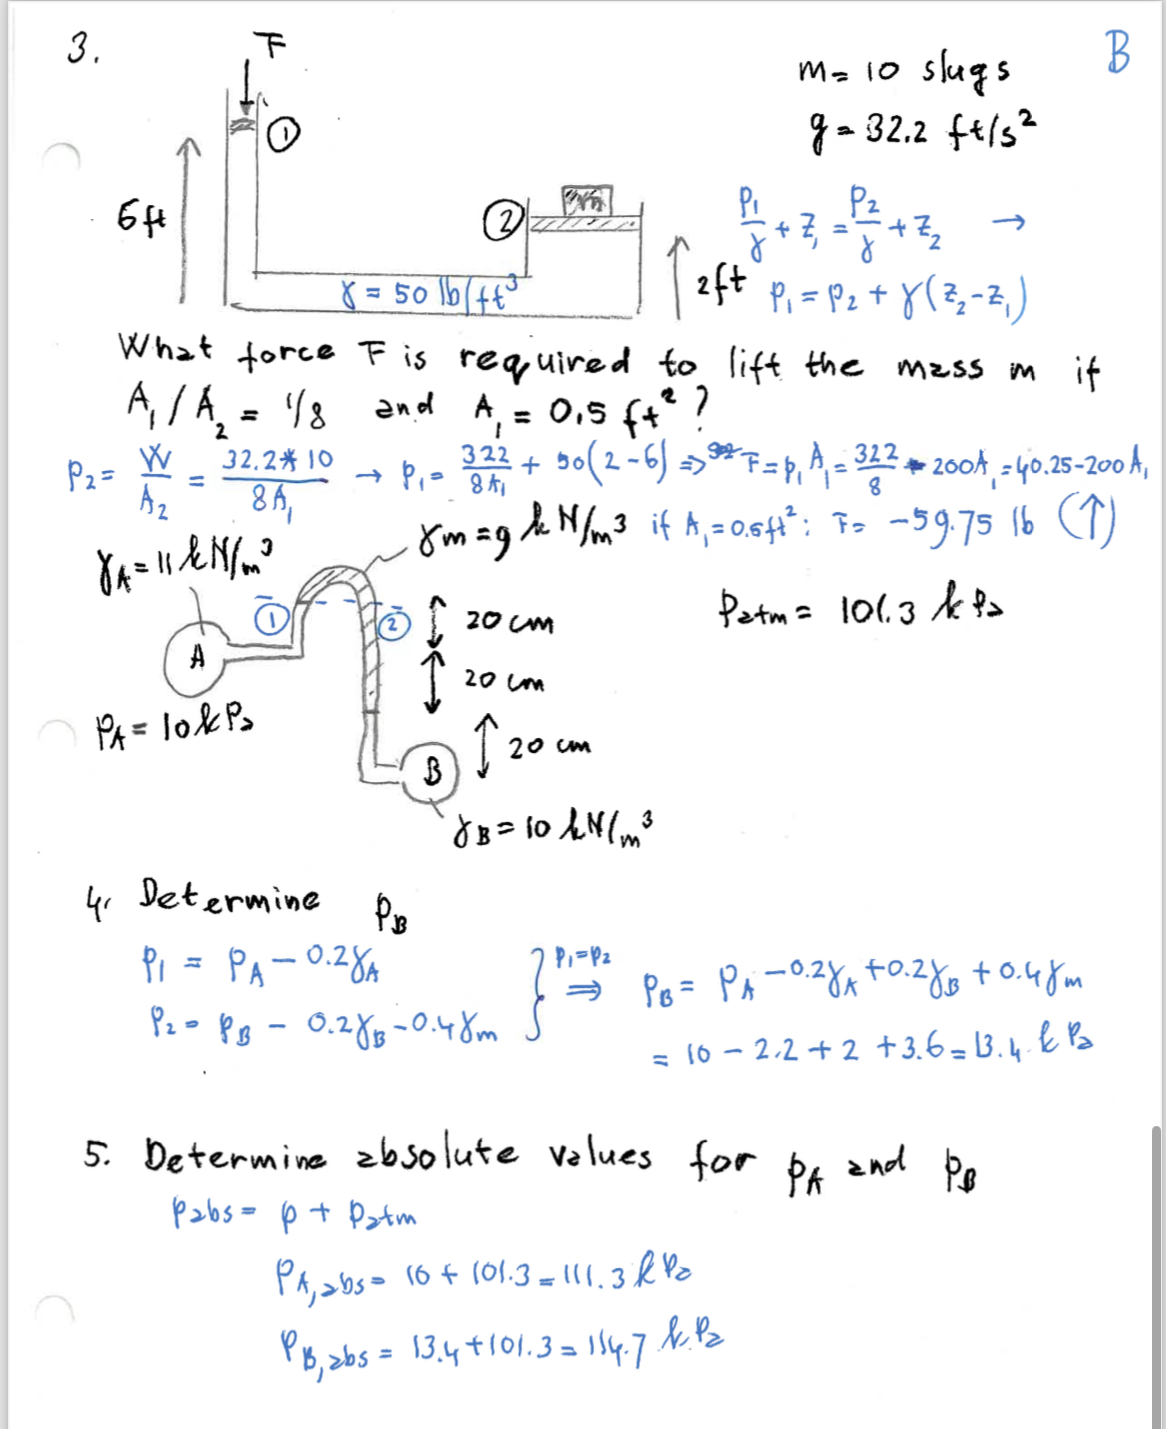 3.
F
B
m = 10 slugs
g = 32.2 ft/s²
①
6 ft
②
m
γ = 50 lb/ft³
2ft
p₁/γ + z₁ = p₂/γ + z₂ →
p₁ = p₂ + γ(z₂-z₁)
What force F is required to lift the mass m if
A₁/A₂ = 1/8 and A₁ = 0,5 ft² ?
p₂ = W/A₂ = 32.2*10/8A₁ → p₁ = 322/8A₁ + 50(2-6) => F = p₁A₁ = 322/8 - 200A₁ = 40.25-200A₁
if A₁ = 0.5ft² : F = -59.75 lb (↑)
γA = 11 kN/m³
γm = 9 kN/m³
① ②
20 cm
patm = 101.3 kPa
A
20 cm
pA = 10 kPa
20 cm
B
γB = 10 kN/m³
4. Determine pB
p₁ = pA - 0.2γA
p₂ = pB - 0.2γB - 0.4γm
} p₁=p₂ ⇒ pB = pA - 0.2γA + 0.2γB + 0.4γm
= 10 - 2.2 + 2 + 3.6 = 13.4 kPa
5. Determine absolute values for pA and pB
pabs = p + patm
pA,abs = 10 + 101.3 = 111.3 kPa
pB,abs = 13.4 + 101.3 = 114.7 kPa